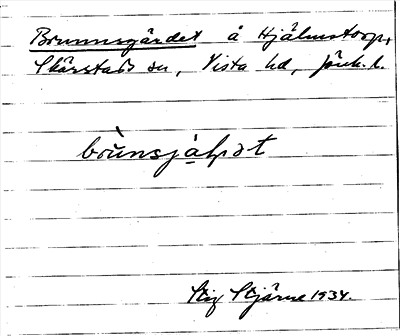 Brunnsgärdet å Hjälmstorp,
Skärstads sn, Vista hd, Jönk. l.
brùnsjàḷpət
Stig Stjärne 1934.